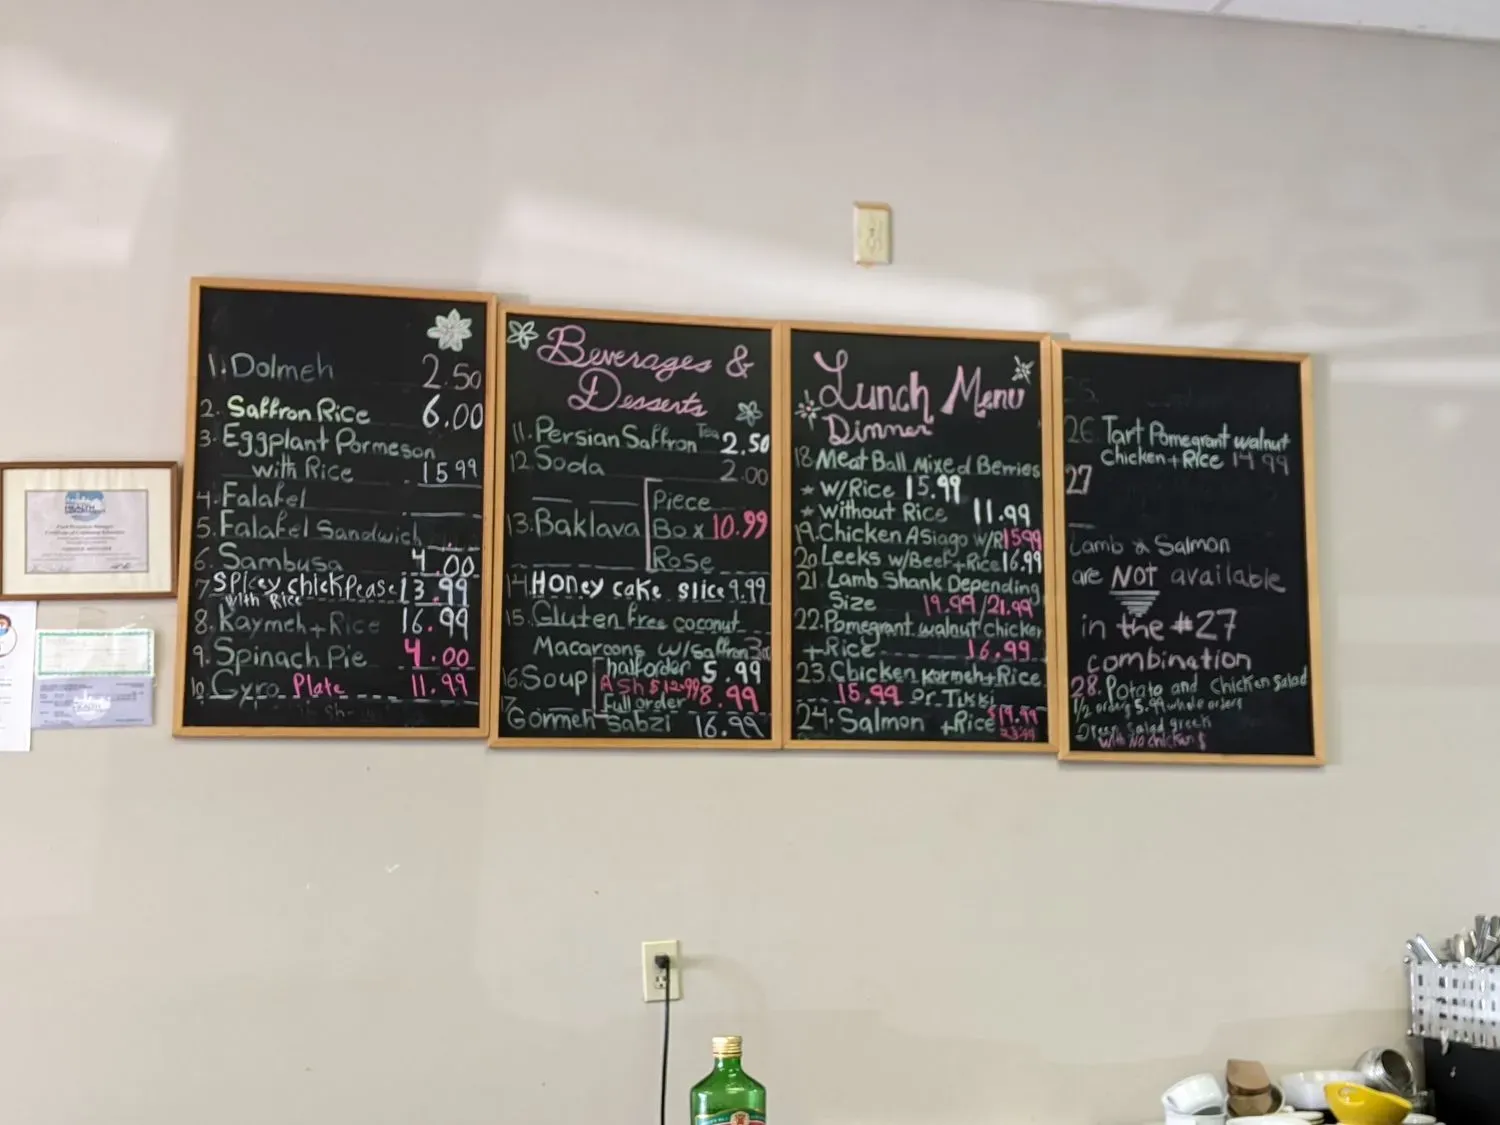 1. Dolmeh 2.50
2. Saffron Rice 6.00
3. Eggplant Pormeson
with Rice 15.99
4. Falafel
5. Falafel Sandwich
6. Sambusa 4.00
7 Spicy chickpease 13.99
with Rice
8. Kaymeh + Rice 16.99
9. Spinach Pie 4.00
10 Gyro Plate 11.99
Beverages &
Desserts
11. Persian Saffron Tea 2.50
12. Soda 2.00
Piece
13. Baklava Box 10.99
Rose
14 Honey cake slice 9.99
15. Gluten free coconut
Macaroons w/saffron
16. Soup half order 5.99
ASh $12.99 8.99
Full order
17 Gormeh sabzi 16.99
Lunch Menu
Dinner
18 Meat Ball Mixed Berries
w/Rice 15.99
without Rice 11.99
19. Chicken Asiago w/R 15.99
20 Leeks w/Beef + Rice 16.99
21 Lamb Shank Depending
Size 19.99/21.99
22. Pomegrant walnut chicken
+ Rice 16.99
23. Chicken kormeh + Rice
15.99 Or Tikki
24. Salmon + Rice $19.99
23.99
25.
26 Tart Pomegrant walnut
Chicken + Rice 14.99
27
Lamb & Salmon
are NOT available
in the #27
combination
28. Potato and Chicken Salad
1/2 order 5.99 whole order
Green Salad greek
with No chicken
HEALTH